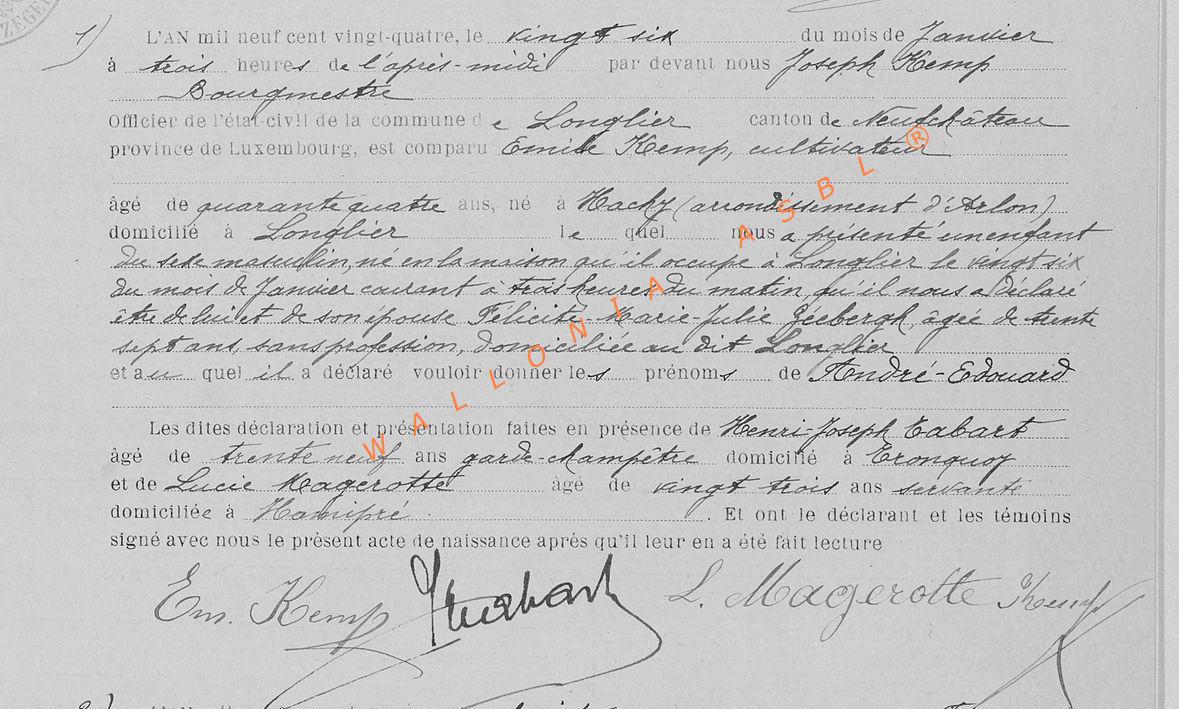 ZEGER
1) L'AN mil neuf cent vingt-quatre, le vingt six du mois de Janvier
à trois heures de l'après-midi par devant nous Joseph Kemp
Bourgmestre
Officier de l'état-civil de la commune de Longlier canton de Neufchâteau
province de Luxembourg, est comparu Emile Kemp, cultivateur
âgé de quarante quatre ans, né à Hachy (arrondissement d'Arlon)
domicilié à Longlier le quel nous a présenté un enfant
du sexe masculin, né en la maison qu'il occupe à Longlier le vingt six
du mois de Janvier courant à trois heures du matin, qu'il nous a déclaré
être de lui et de son épouse Félicité-Marie-Julie âgée de trente
sept ans, sans profession, domiciliée au dit Longlier
et au quel il a déclaré vouloir donner les prénoms de André-Edouard
Les dites déclaration et présentation faites en présence de Henri-Joseph Tabart
âgé de trente neuf ans garde-champêtre domicilié à Tronquoy
et de Lucie Magerotte âgé de vingt trois ans servante
domiciliée à Hamipré. Et ont le déclarant et les témoins
signé avec nous le présent acte de naissance après qu'il leur en a été fait lecture
Em. Kemp L. Magerotte Kemp
WALLONIA ASBL ®